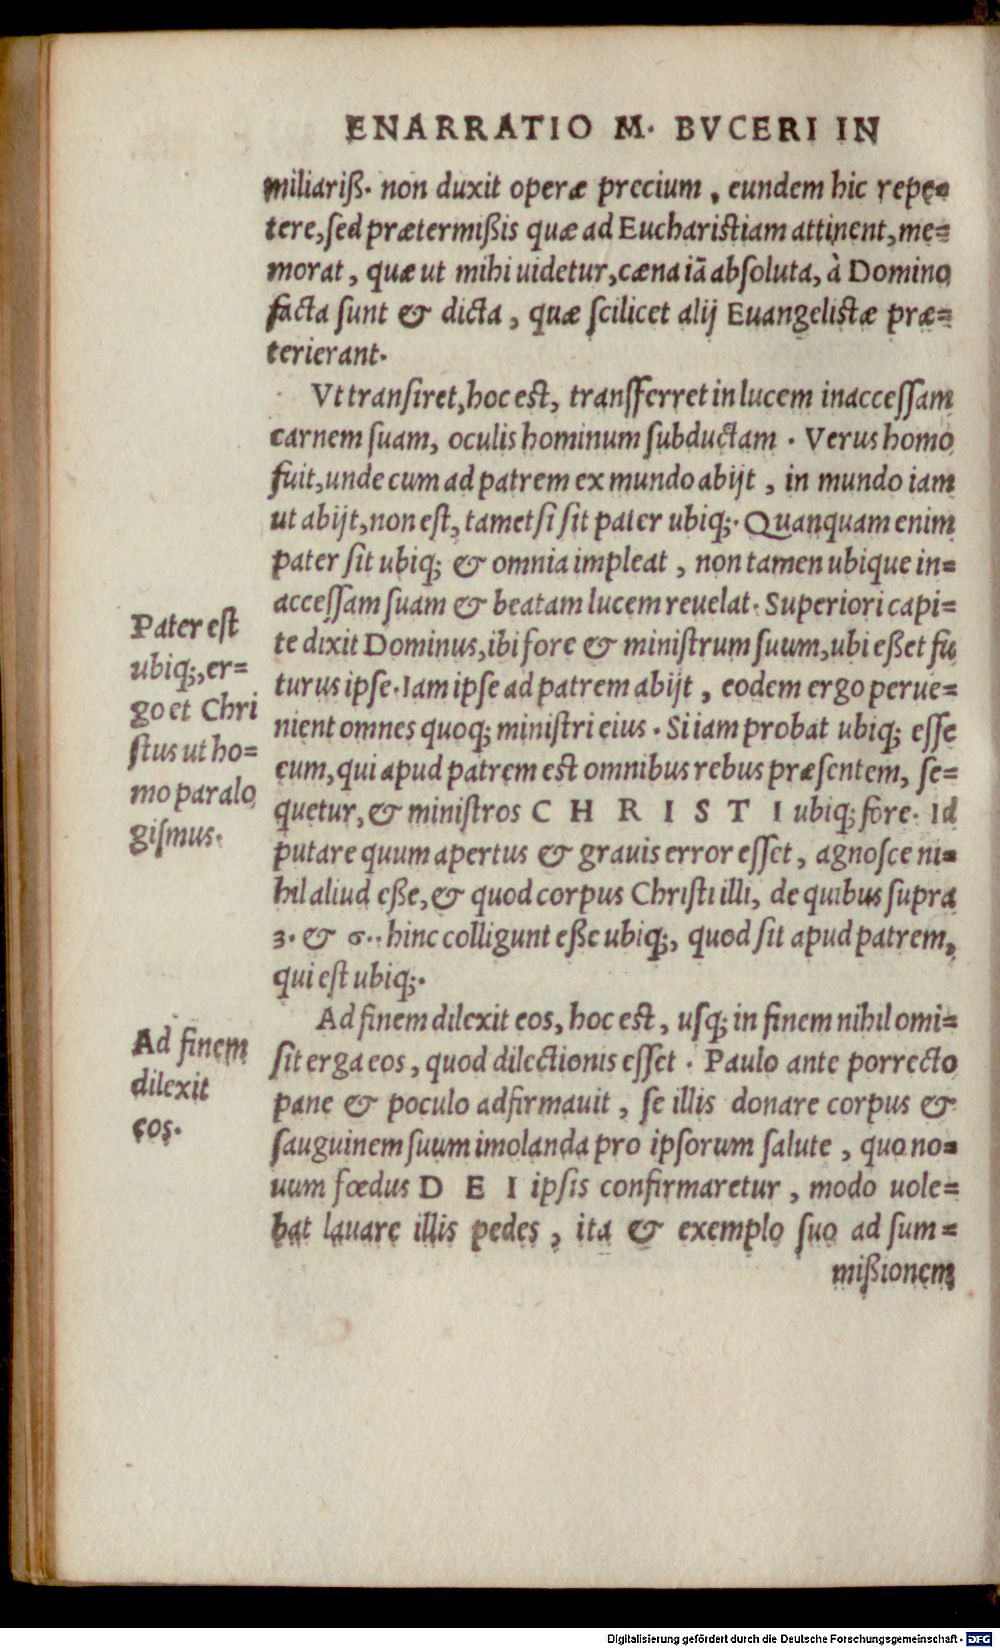 ENARRATIO M. BVCERI IN
miliariß. non duxit operæ precium, eundem hic repe=
tere, sed prætermißis quæ ad Eucharistiam attinent, me=
morat, quæ ut mihi uidetur, cæna iā absoluta, à Domino
facta sunt & dicta, quæ scilicet alij Euangelistæ præ=
terierant.
Vt transiret, hoc est, transferret in lucem inaccessam
carnem suam, oculis hominum subductam. Verus homo
fuit, unde cum ad patrem ex mundo abijt, in mundo iam
ut abijt, non est, tametsi sit pater ubiq;. Quanquam enim
pater sit ubiq; & omnia impleat, non tamen ubique in=
accessam suam & beatam lucem reuelat. Superiori capi=
te dixit Dominus, ibi fore & ministrum suum, ubi eßet fu
turus ipse. Iam ipse ad patrem abijt, eodem ergo perue=
nient omnes quoq; ministri eius. Si iam probat ubiq; esse
eum, qui apud patrem est omnibus rebus præsentem, se=
quetur, & ministros CHRISTI ubiq; fore. Id
putare quum apertus & grauis error esset, agnosce ni=
hil aliud eße, & quod corpus Christi illi, de quibus supra
3. & 6.. hinc colligunt eße ubiq;, quod sit apud patrem,
qui est ubiq;.
Pater est
ubiq;, er=
go et Chri
stus ut ho=
mo paralo
gismus.
Ad finem dilexit eos, hoc est, usq; in finem nihil omi=
sit erga eos, quod dilectionis esset. Paulo ante porrecto
pane & poculo adfirmauit, se illis donare corpus &
sauguinem suum imolanda pro ipsorum salute, quo no=
uum fœdus DEI ipsis confirmaretur, modo uole=
bat lauare illis pedes, ita & exemplo suo ad sum=
mißionem
Ad finem
dilexit
eos.
Digitalisierung gefördert durch die Deutsche Forschungsgemeinschaft - DFG